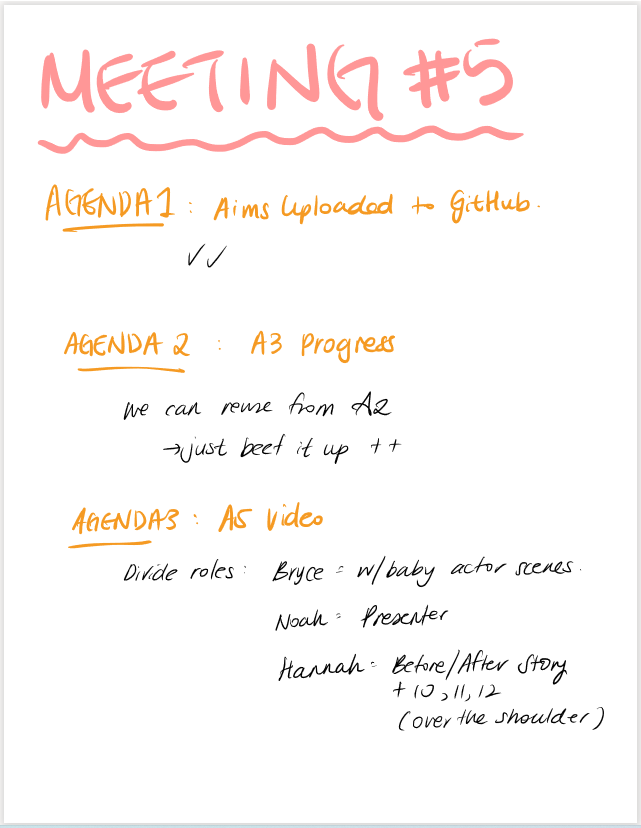 MEETING #5
AGENDA 1 : Aims Uploaded to GitHub.
✓✓
AGENDA 2 : A3 Progress
we can reuse from A2
→just beef it up ++
AGENDA3 : A5 Video
Divide roles: Bryce = w/baby actor scenes.
Noah = Presenter
Hannah = Before/After Story
+ 10, 11, 12
(over the shoulder)